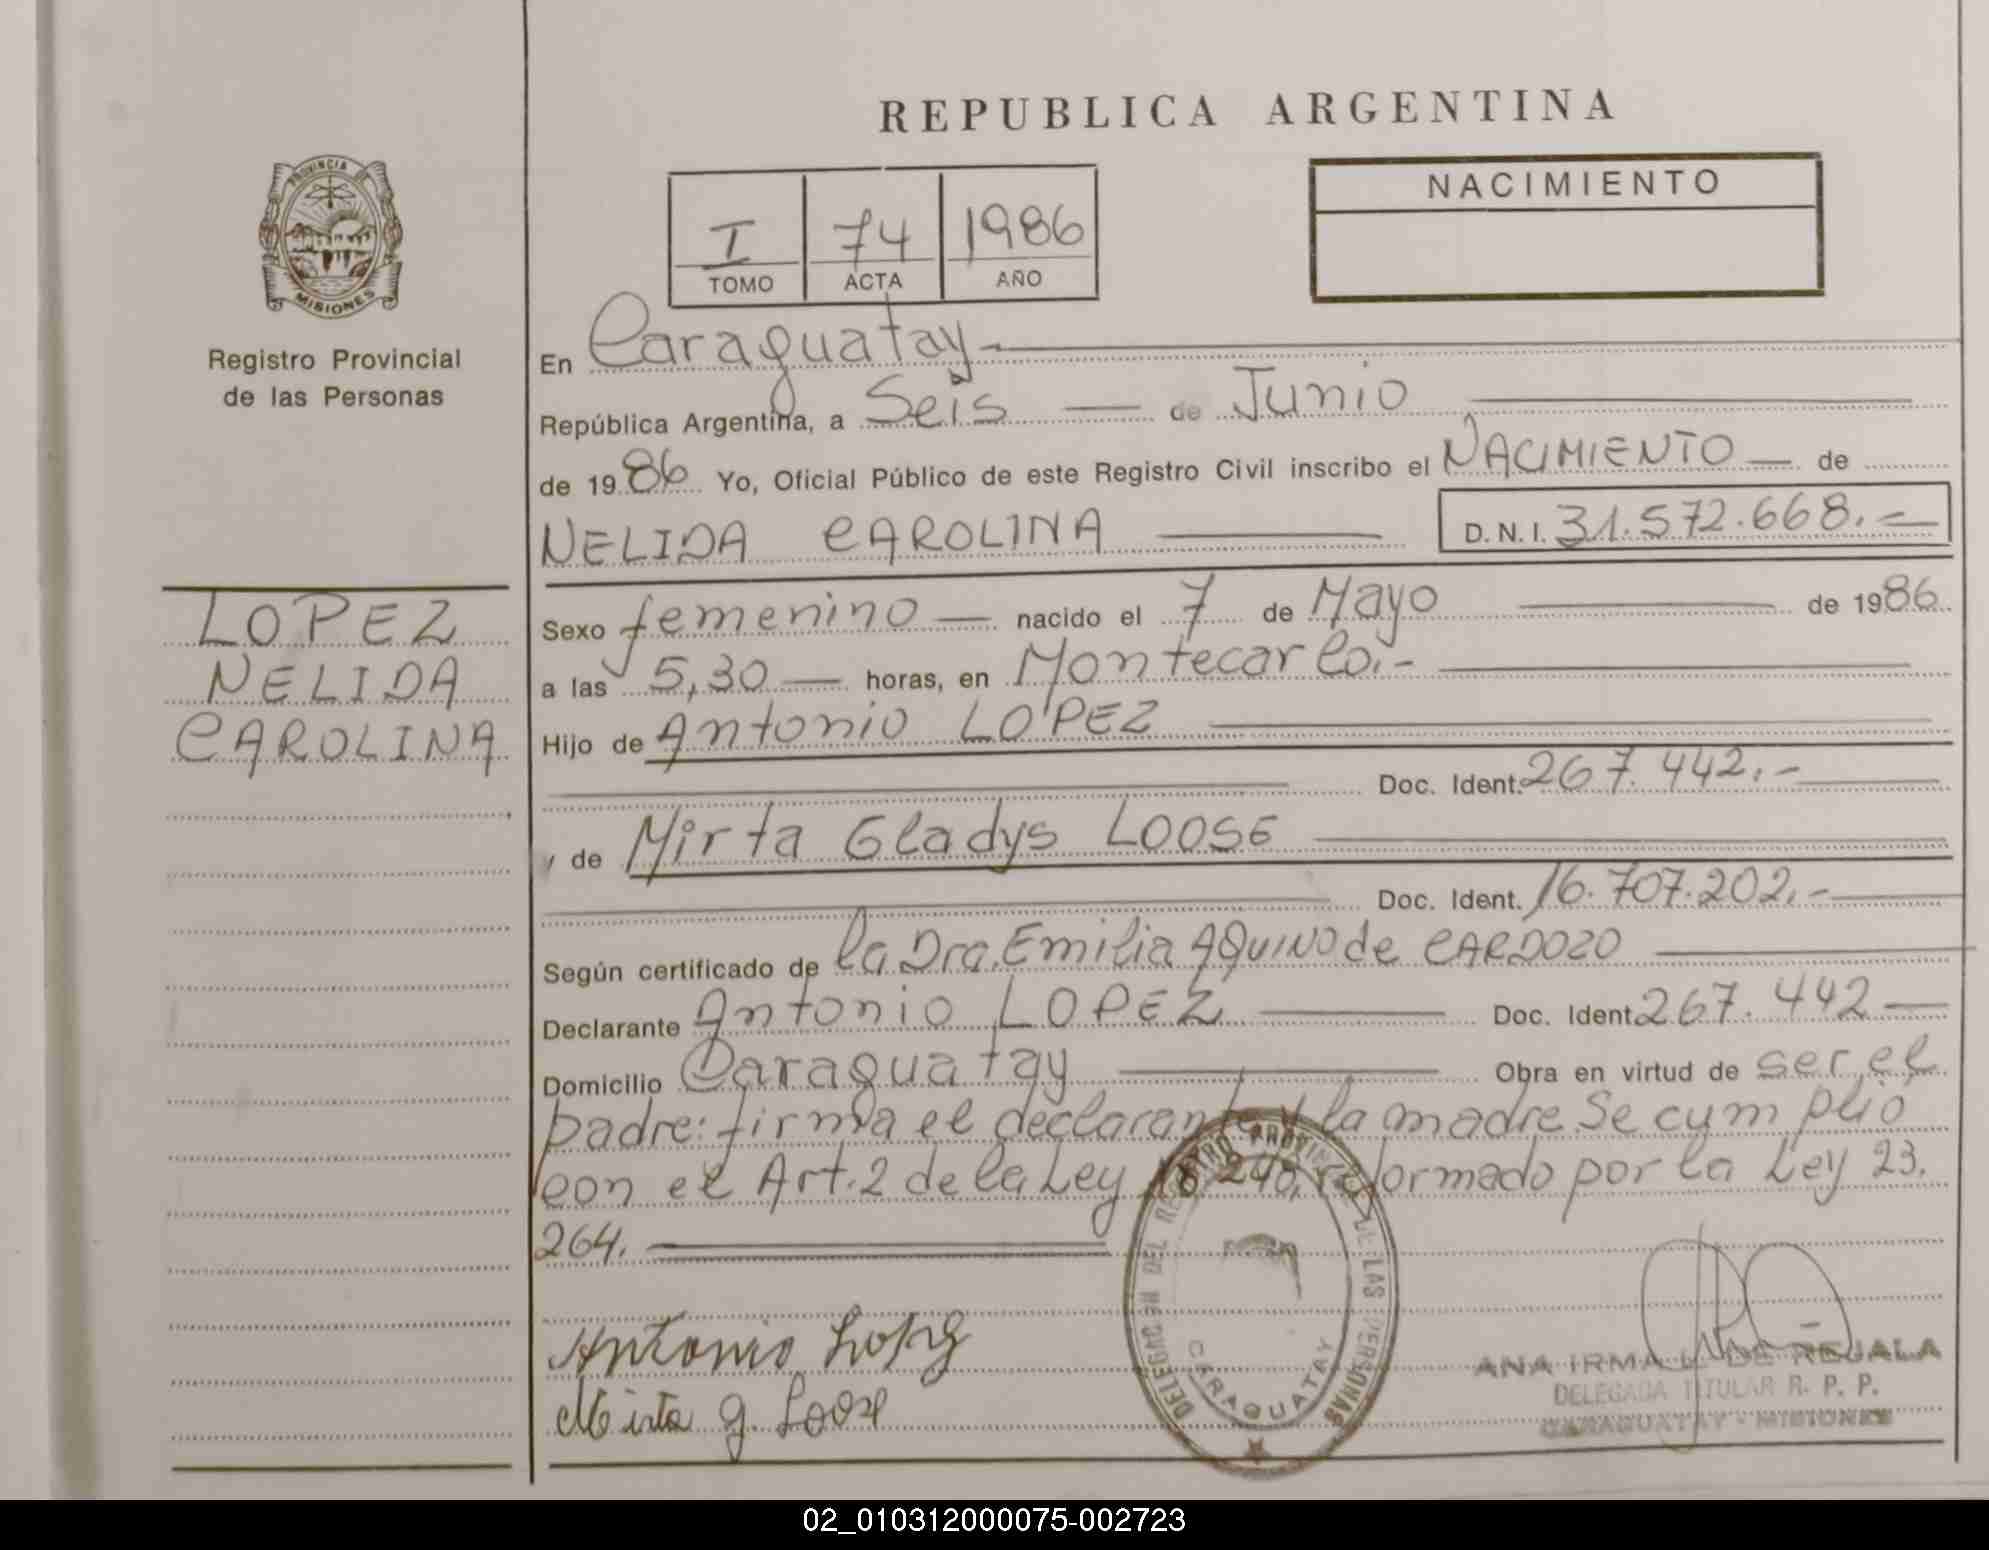 REPUBLICA ARGENTINA
PROVINCIA DE
MISIONES
Registro Provincial
de las Personas
I 74 1986
TOMO ACTA AÑO
NACIMIENTO
LOPEZ
NELIDA
CAROLINA
En Caraguatay
República Argentina, a Seis de Junio
de 1986 Yo, Oficial Público de este Registro Civil inscribo el NACIMIENTO de
NELIDA CAROLINA D. N. I. 31.572.668.-
Sexo femenino nacido el 7 de Mayo de 1986
a las 5,30 horas, en Montecarlo.-
Hijo de Antonio LOPEZ
Doc. Ident. 267.442.-
y de Mirta Gladys LOOSE
Doc. Ident. 16.707.202.-
Según certificado de la Dra. Emilia AQUINO de CARDOZO
Declarante Antonio LOPEZ Doc. Ident. 267.442
Domicilio Caraguatay Obra en virtud de ser el
padre: firma el declarante y la madre. Se cumplio
con el Art. 2 de la Ley 18.248, reformado por la Ley 23.
264.
Antonio Lopez
Mirta G. Loose
DELEGACION DEL REGISTRO PROVINCIAL DE LAS PERSONAS
CARAGUATAY
ANA IRMA L. DE REJALA
DELEGADA TITULAR R. P. P.
CARAGUATAY - MISIONES
02_010312000075-002723